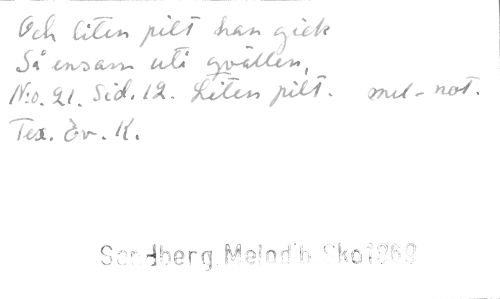 Och liten pilt han gick
Så ensam uti qvällen,
N:o. 21. Sid. 12. Liten pilt. mel-not.
Tex. Öv. K.
Sandberg, Melodib Sko 1869